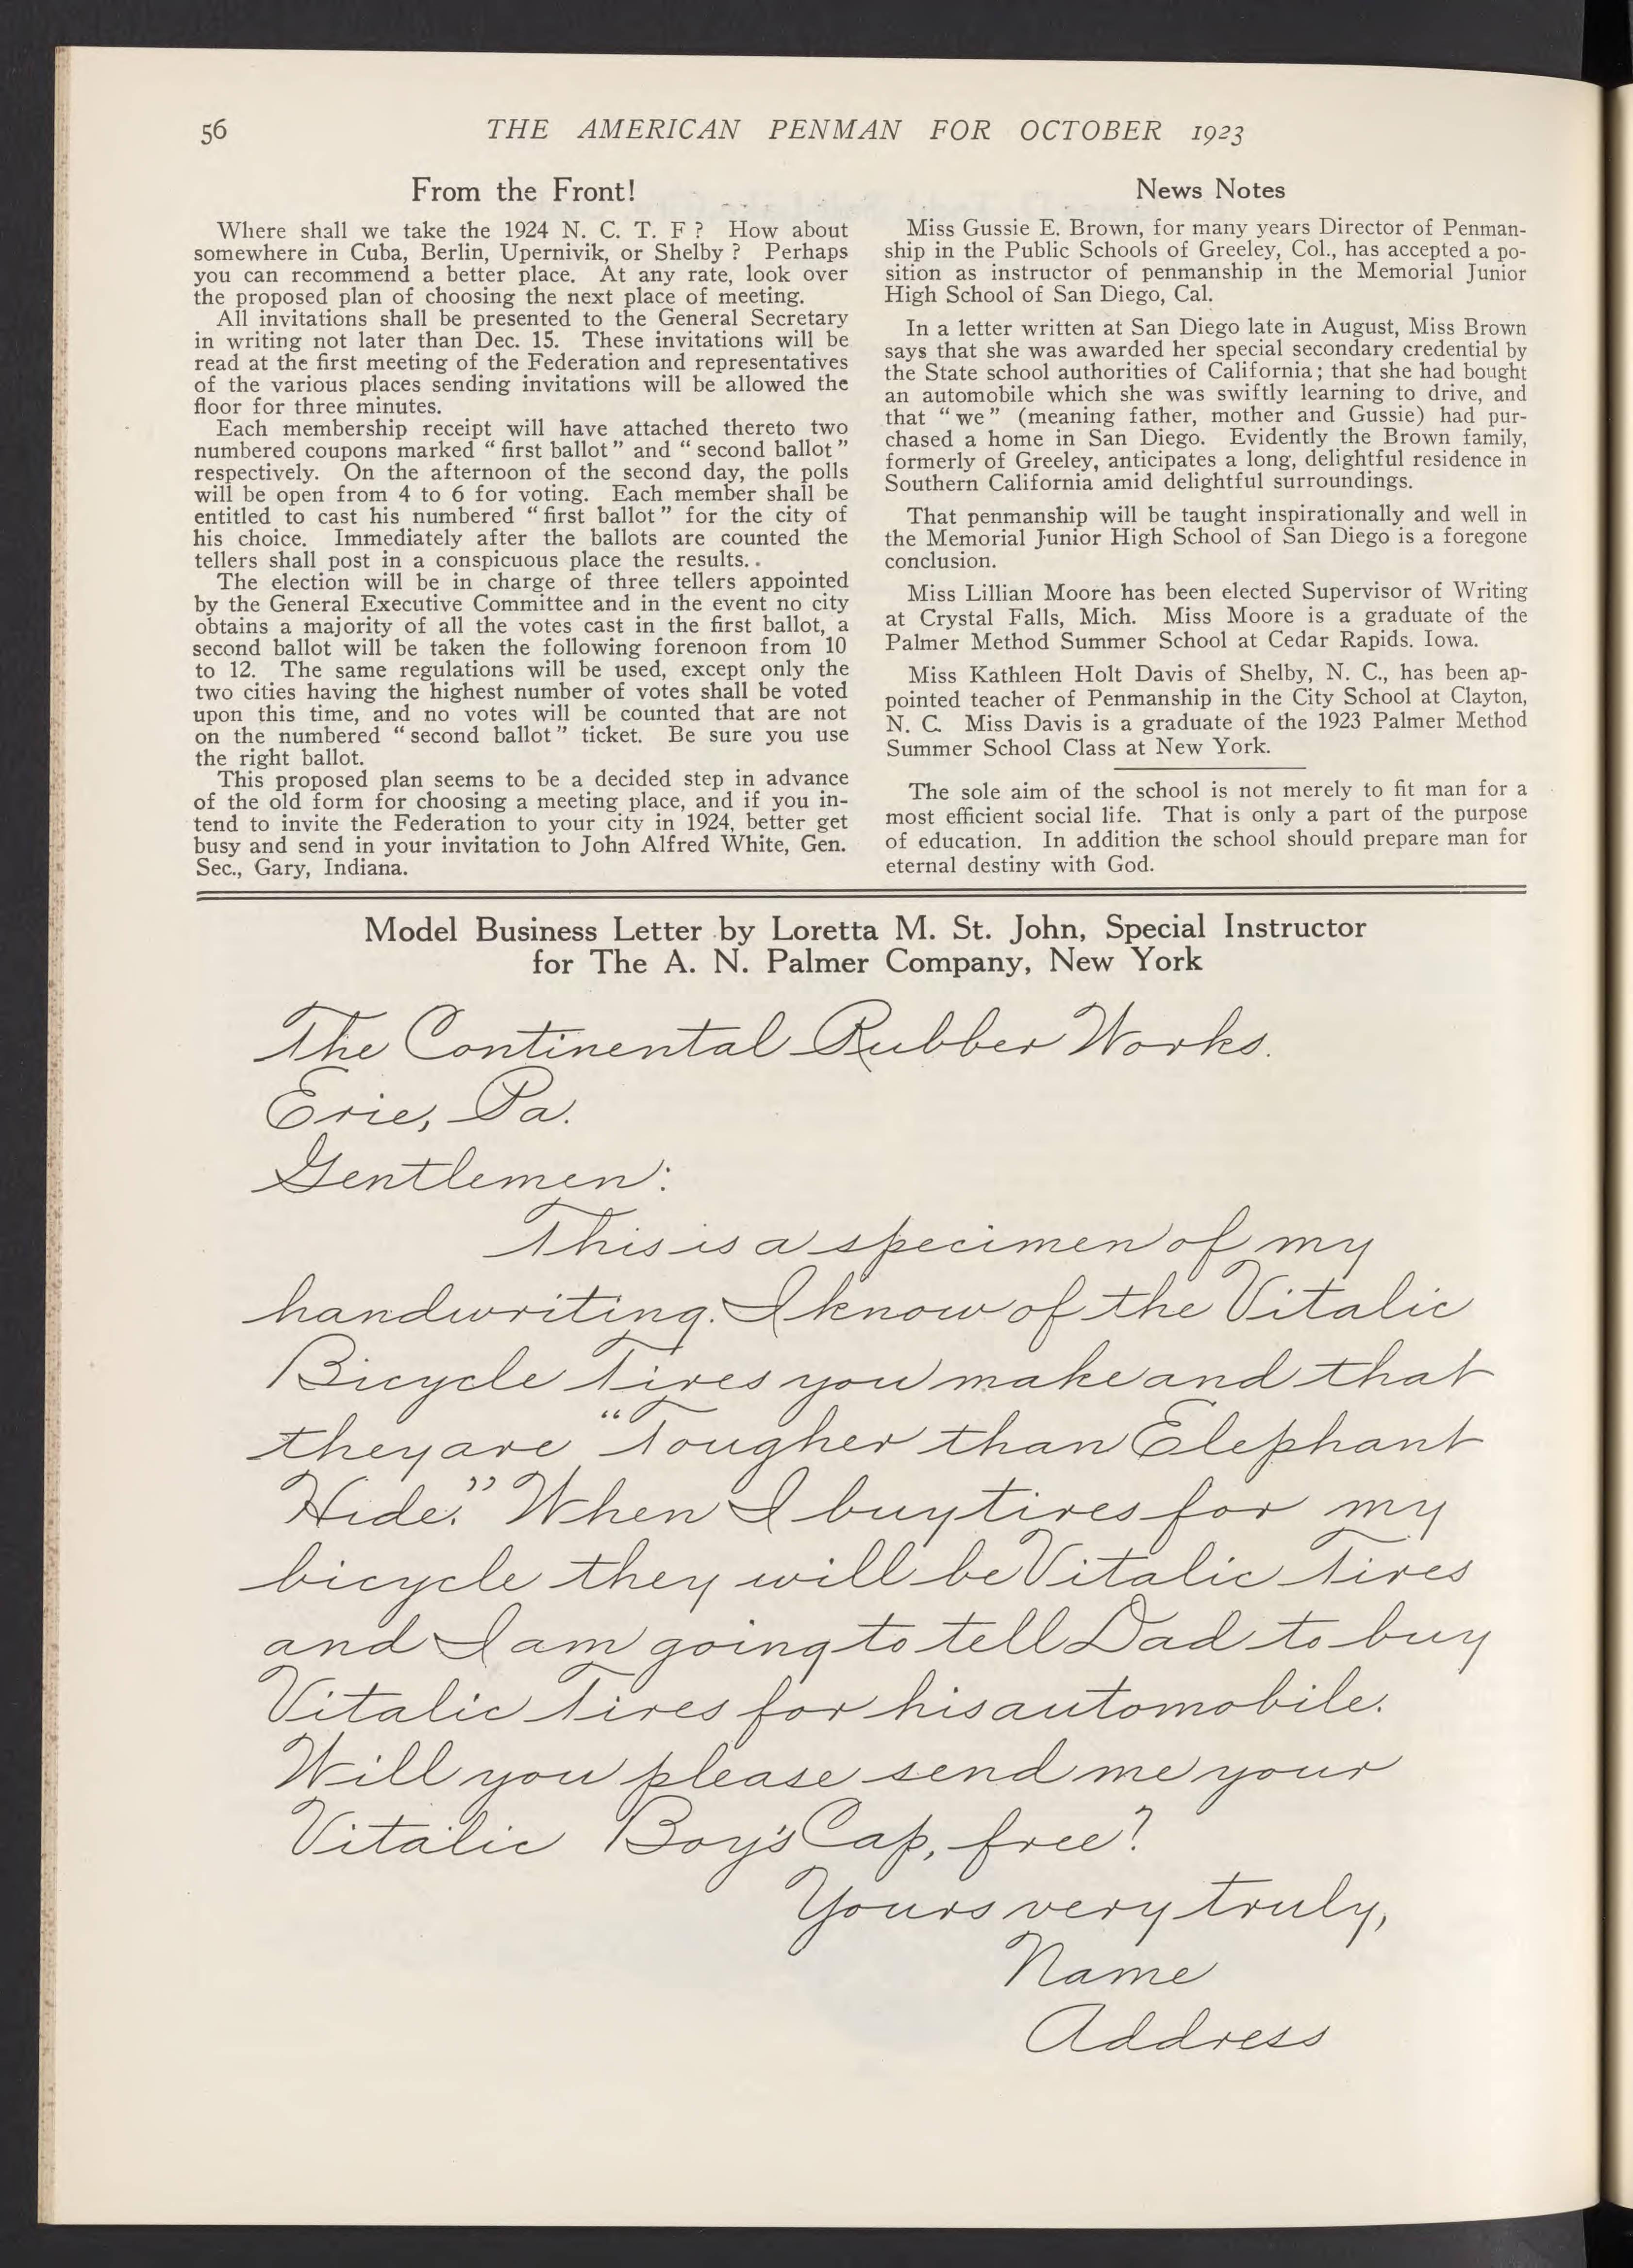 56
THE AMERICAN PENMAN FOR OCTOBER 1923
From the Front!
Where shall we take the 1924 N. C. T. F ? How about
somewhere in Cuba, Berlin, Upernivik, or Shelby ? Perhaps
you can recommend a better place. At any rate, look over
the proposed plan of choosing the next place of meeting.
All invitations shall be presented to the General Secretary
in writing not later than Dec. 15. These invitations will be
read at the first meeting of the Federation and representatives
of the various places sending invitations will be allowed the
floor for three minutes.
Each membership receipt will have attached thereto two
numbered coupons marked “ first ballot ” and “ second ballot ”
respectively. On the afternoon of the second day, the polls
will be open from 4 to 6 for voting. Each member shall be
entitled to cast his numbered “ first ballot ” for the city of
his choice. Immediately after the ballots are counted the
tellers shall post in a conspicuous place the results. .
The election will be in charge of three tellers appointed
by the General Executive Committee and in the event no city
obtains a majority of all the votes cast in the first ballot, a
second ballot will be taken the following forenoon from 10
to 12. The same regulations will be used, except only the
two cities having the highest number of votes shall be voted
upon this time, and no votes will be counted that are not
on the numbered “ second ballot ” ticket. Be sure you use
the right ballot.
This proposed plan seems to be a decided step in advance
of the old form for choosing a meeting place, and if you in-
tend to invite the Federation to your city in 1924, better get
busy and send in your invitation to John Alfred White, Gen.
Sec., Gary, Indiana.
News Notes
Miss Gussie E. Brown, for many years Director of Penman-
ship in the Public Schools of Greeley, Col., has accepted a po-
sition as instructor of penmanship in the Memorial Junior
High School of San Diego, Cal.
In a letter written at San Diego late in August, Miss Brown
says that she was awarded her special secondary credential by
the State school authorities of California ; that she had bought
an automobile which she was swiftly learning to drive, and
that “ we ” (meaning father, mother and Gussie) had pur-
chased a home in San Diego. Evidently the Brown family,
formerly of Greeley, anticipates a long, delightful residence in
Southern California amid delightful surroundings.
That penmanship will be taught inspirationally and well in
the Memorial Junior High School of San Diego is a foregone
conclusion.
Miss Lillian Moore has been elected Supervisor of Writing
at Crystal Falls, Mich. Miss Moore is a graduate of the
Palmer Method Summer School at Cedar Rapids. Iowa.
Miss Kathleen Holt Davis of Shelby, N. C., has been ap-
pointed teacher of Penmanship in the City School at Clayton,
N. C. Miss Davis is a graduate of the 1923 Palmer Method
Summer School Class at New York.
The sole aim of the school is not merely to fit man for a
most efficient social life. That is only a part of the purpose
of education. In addition the school should prepare man for
eternal destiny with God.
Model Business Letter by Loretta M. St. John, Special Instructor
for The A. N. Palmer Company, New York
The Continental Rubber Works.
Erie, Pa.
Gentlemen:
This is a specimen of my
handwriting. I know of the Vitalic
Bicycle Tires you make and that
they are “Tougher than Elephant
Hide.” When I buy tires for my
bicycle they will be Vitalic Tires
and I am going to tell Dad to buy
Vitalic Tires for his automobile.
Will you please send me your
Vitalic Boy's Cap, free?
Yours very truly,
Name
Address